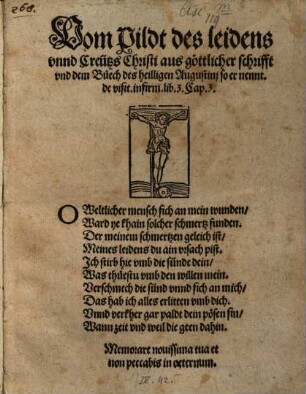 268.
Asc. III
119
Vom Pildt des leidens
vnnd Creützs Christi aus göttlicher schrifft
vnd dem Büech des heilligen Augustinj so er nennt.
de visit.infirm.lib.3.Cap.3.
O Weltlicher mensch sich an mein wunden/
Ward ye khain solcher schmertz funden.
Der meinem schmertzen geleich ist/
Meines leidens du ain vrsach pist.
Ich stirb hie vmb die sünde dein/
Was thüestu vmb den willen mein.
Verschmech die sünd vnnd sich an mich/
Das hab ich alles erlitten vmb dich.
Vnnd verkher gar paldt dein pösen sin/
Wann zeit vnd weil die geen dahin.
Memorare nouissima tua et
non peccabis in eternum.
IV. 92.